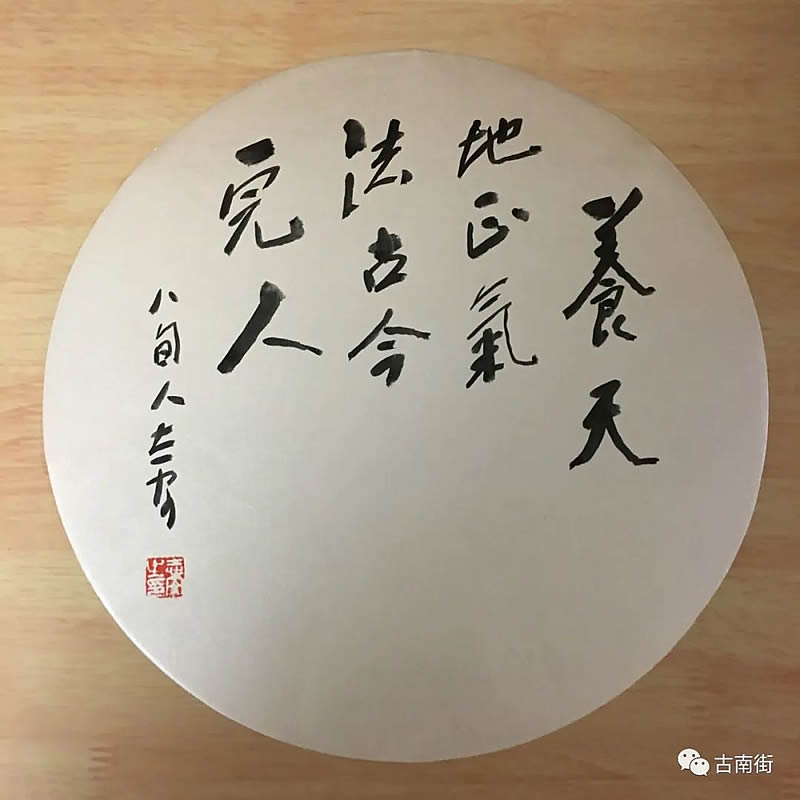 養天
地正氣
法古今
完人
八旬人
古南街